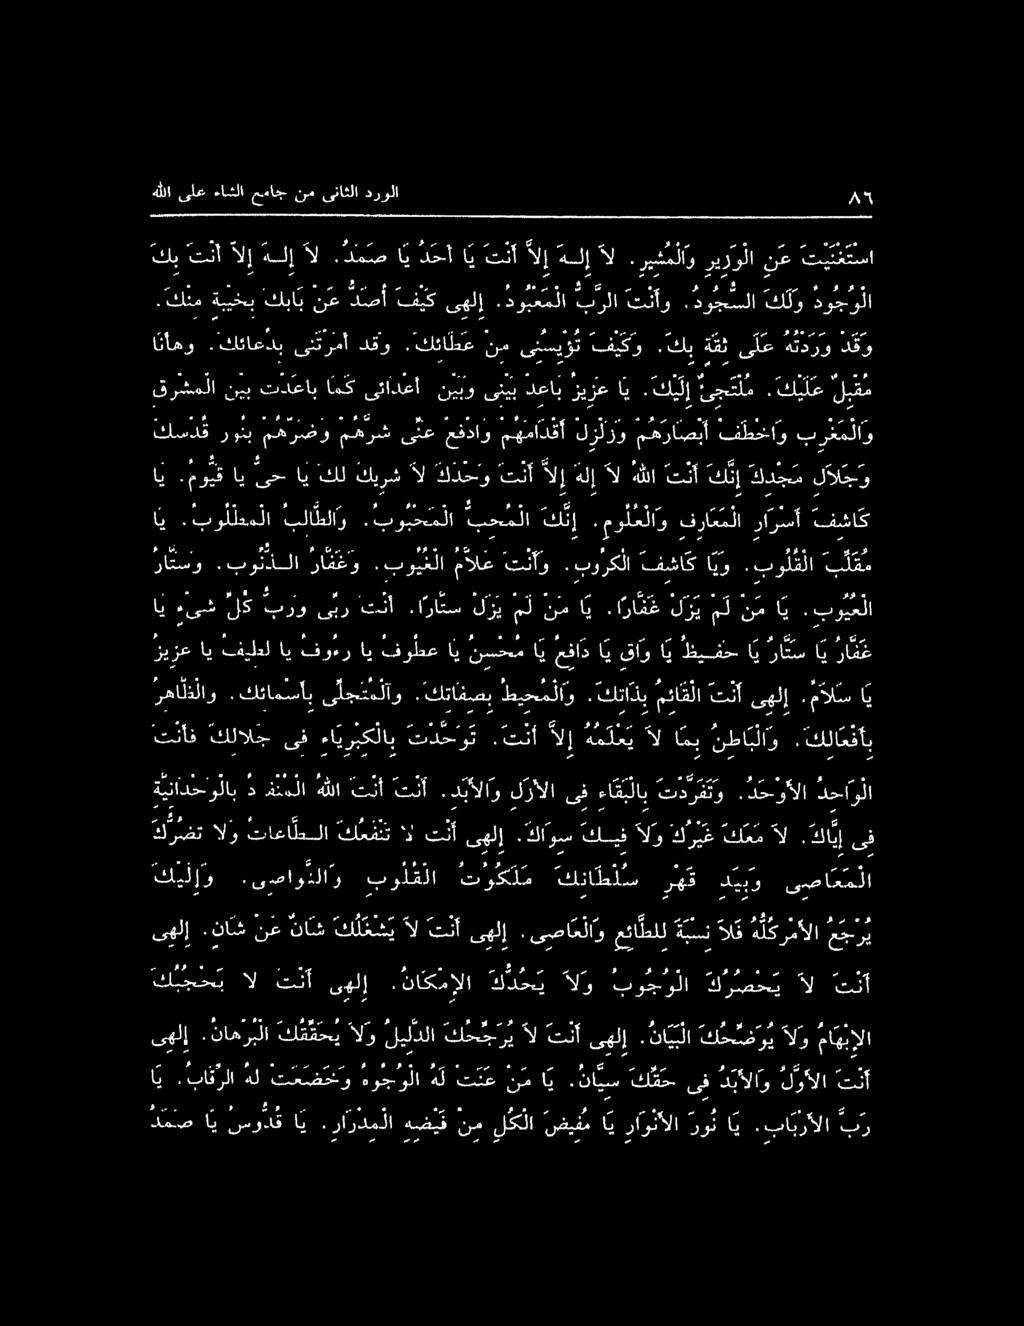 ٨٦ الورد الثانى من جامع الثناء على الله
اسْتَغْنَيْتَ عَنِ الْوَزِيرِ وَالْمُشِيرِ. لاَ إِلَـهَ إِلاَّ أَنْتَ يَا أَحَدُ يَا صَمَدُ. لاَ إِلَـهَ إِلاَّ أَنْتَ بِكَ
الْوُجُودُ وَلَكَ السُّجُودُ. وَأَنْتَ الرَّبُّ الْمَعْبُودُ. إِلهِى كَيْفَ أُصَدُّ عَنْ بَابِكَ بِخَيْبَةٍ مِنْكَ.
وَقَدْ وَرَدْتُهُ عَلَى ثِقَةٍ بِكَ. وَكَيْفَ تُؤْيِسُنِى مِنْ عَطَائِكَ. وَقَد أَمَرْتَنِى بِدُعَائِكَ. وَهَأَنَا
مُقْبِلٌ عَلَيْكَ. مُلْتَجِئٌ إِلَيْكَ. يَا عَزِيزُ بَاعِدْ بَيْنِى وَبَيْنَ أَعْدَائِى كَمَا بَاعَدْتَ بَيْنَ الْمَشْرِقِ
وَالْمَغْرِبِ وَاخْطَفْ أَبْصَارَهُمْ وَزَلْزِلْ أَقْدَامَهُمْ وَادْفَعْ عَنِّى شَرَّهُمْ وَضَرَّهُمْ بِنُورِ قُدْسِكَ
وَجَلاَلِ مَجْدِكَ إِنَّكَ أَنْتَ اللهُ لاَ إِلهَ إِلاَّ أَنْتَ وَحْدَكَ لاَ شَرِيكَ لَكَ يَا حَىُّ يَا قَيُّومُ. يَا
كَاشِفَ أَسْرَارِ الْمَعَارِفِ وَالْعُلُومِ. إِنَّكَ الْمُحِبُّ الْمَحْبُوبُ. وَالطَّالِبُ الْمَطْلُوبُ. يَا
مُقَلِّبَ الْقُلُوبِ. وَيَا كَاشِفَ الْكُرُوبِ. وَأَنْتَ عَلاَّمُ الْغُيُوبِ. وَغَفَّارُ الـذُّنُوبِ. وَسَتَّارُ
الْعُيُوبِ. يَا مَنْ لَمْ يَزَلْ غَفَّارًا. يَا مَنْ لَمْ يَزَلْ سَتَّارًا. أَنْتَ رَبِّى وَرَبُّ كُلِّ شَىْءٍ يَا
غَفَّارُ يَا سَتَّارُ يَا حَفِـيظُ يَا وَاقِ يَا دَافِعُ يَا مُحْسِنُ يَا عَطُوفُ يَا رَءُوفُ يَا لَطِيفُ يَا عَزِيزُ
يَا سَلاَمُ. إِلهِى أَنْتَ الْقَائِمُ بِذَاتِكَ. وَالْمُحِيطُ بِصِفَاتِكَ. وَالْمُتَجَلِّى بِأَسْمَائِكَ. وَالظَّاهِرُ
بِأَفْعَالِكَ. وَالْبَاطِنُ بِمَا لاَ يَعْلَمُهُ إِلاَّ أَنْتَ. تَوَحَّدْتَ بِالْكِبْرِيَاءِ فِى جَلاَلِكَ فَأَنْتَ
الْوَاحِدُ الأَوْحَدُ. وَتَفَرَّدْتَ بِالْبَقَاءِ فِى الأَزَلِ وَالأَبَدِ. أَنْتَ أَنْتَ اللهُ الْمُنْفَرِدُ بِالْوَحْدَانِيَّةِ
فِى إِيَّاكَ. لاَ مَعَكَ غَيْرُكَ وَلاَ فِيـكَ سِوَاكَ. إِلهِى أَنْتَ لاَ تَنْفَعُكَ الـطَّاعَاتُ وَلاَ تَضُرُّكَ
الْمَعَاصِى وَبِيَدِ قَهْرِ سُلْطَانِكَ مَلَكُوتُ الْقُلُوبِ وَالنَّوَاصِى. وَإِلَيْكَ
يُرْجَعُ الأَمْرُ كُلُّهُ فَلاَ نِسْبَةَ لِلطَّائِعِ وَالْعَاصِى. إِلهِى أَنْتَ لاَ يَشْغَلُكَ شَانٌ عَنْ شَانٍ. إِلهِى
أَنْتَ لاَ يَحْصُرُكَ الْوُجُوبُ وَلاَ يَحُدُّكَ الإِمْكَانُ. إِلهِى أَنْتَ لاَ يَحْجُبُكَ
الإِبْهَامُ وَلاَ يُوَضِّحُكَ الْبَيَانُ. إِلهِى أَنْتَ لاَ يُرَجِّحُكَ الدَّلِيلُ وَلاَ يُحَقِّقُكَ الْبُرْهَانُ. إِلهِى
أَنْتَ الأَوَّلُ وَالأَبَدُ فِى حَقِّكَ سِيَّانُ. يَا مَنْ عَنَتْ لَهُ الْوُجُوهُ وَخَضَعَتْ لَهُ الرِّقَابُ. يَا
رَبَّ الأَرْبَابِ. يَا نُورَ الأَنْوَارِ يَا مُفِيضَ الْكُلِّ مِنْ فَيْضِهِ الْمِدْرَارِ. يَا قُدُّوسُ يَا صَمَدُ